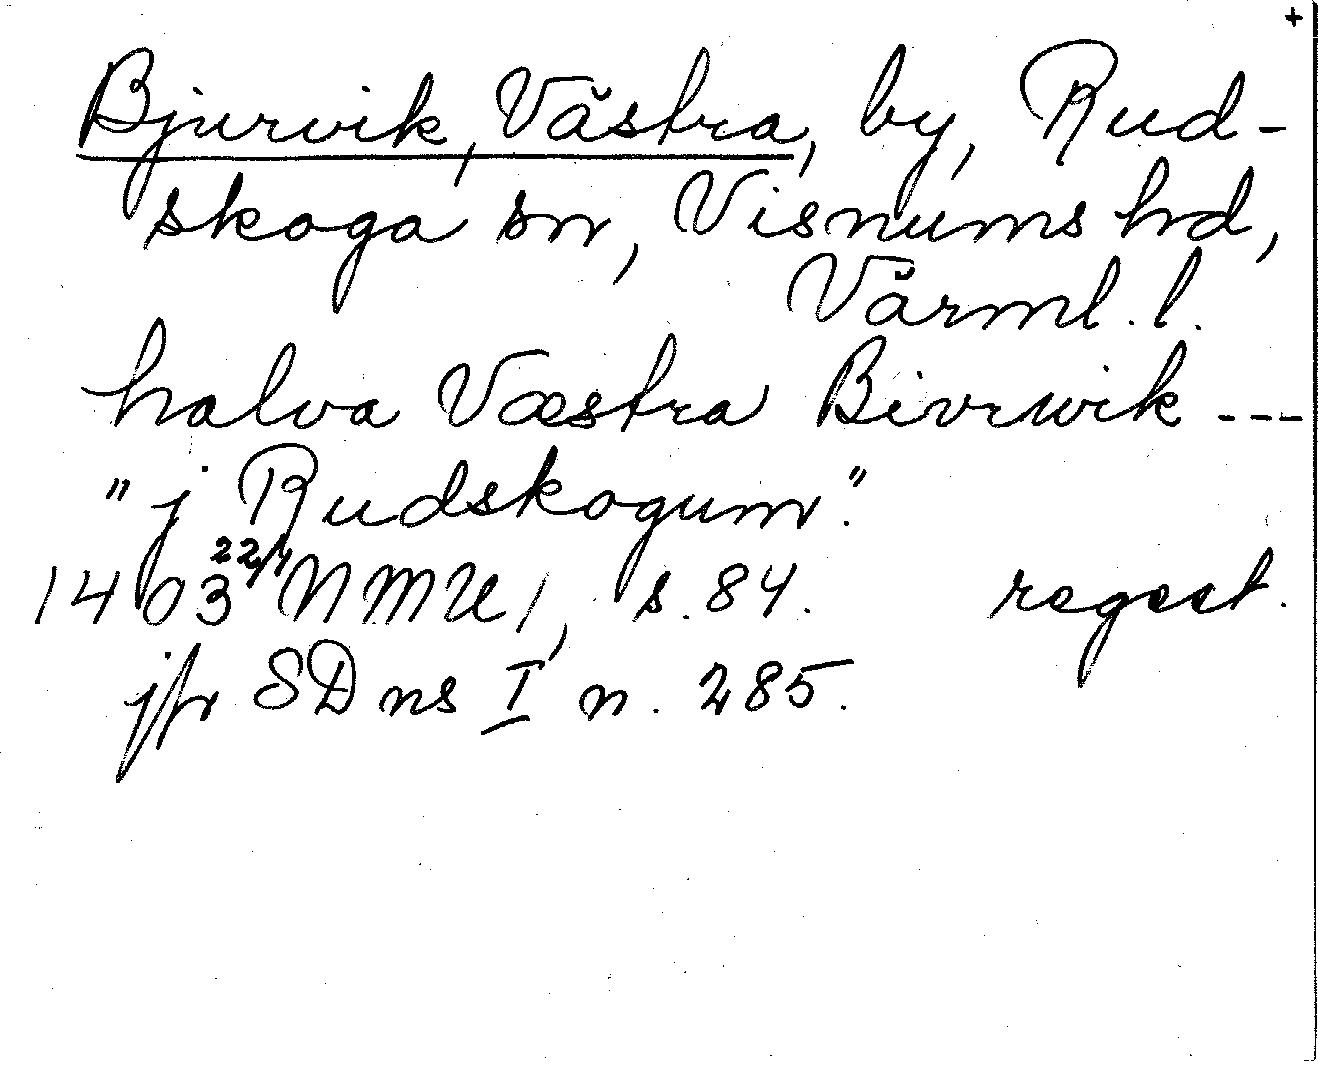 +
Bjurvik, Västra, by, Rud-
skoga sn, Visnums hd,
Värml. l.
halva Væstra Bivrwik ---
"j Rudskogum".
1403 22/4 NMU 1, s. 84. regest.
jfr SD ns I n. 285.